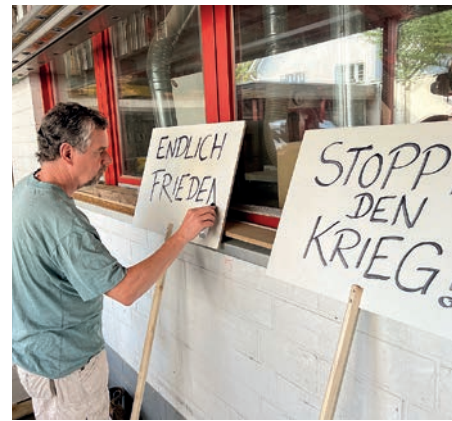 ENDLICH
FRIEDEN
STOPP
DEN
KRIEG!